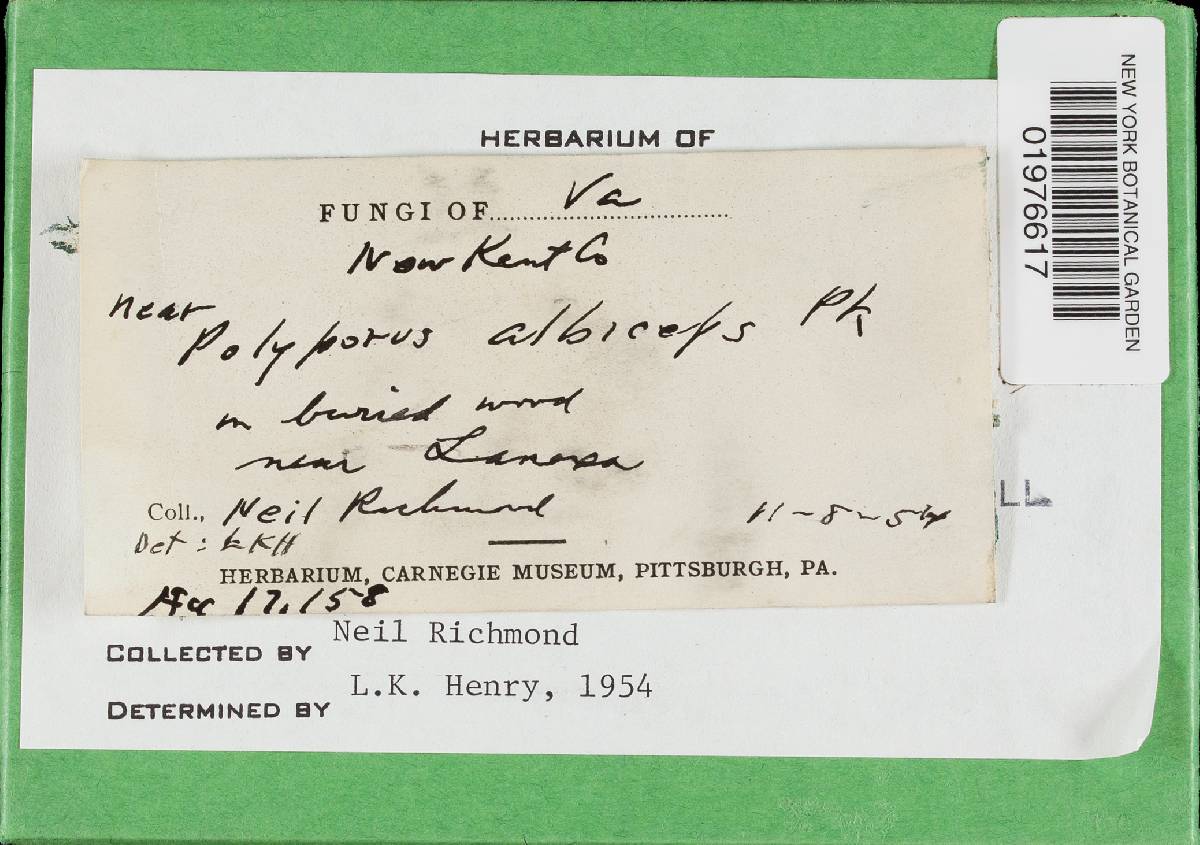 HERBARIUM OF
FUNGI OF Va
New Kent Co
near
Polyporus albiceps Pk
on buried wood
near Lanexa
Coll., Neil Richmond 11-8-54
Det: LKH
HERBARIUM, CARNEGIE MUSEUM, PITTSBURGH, PA.
Acc 17,158
COLLECTED BY Neil Richmond
DETERMINED BY L.K. Henry, 1954
NEW YORK BOTANICAL GARDEN
01976617
LL